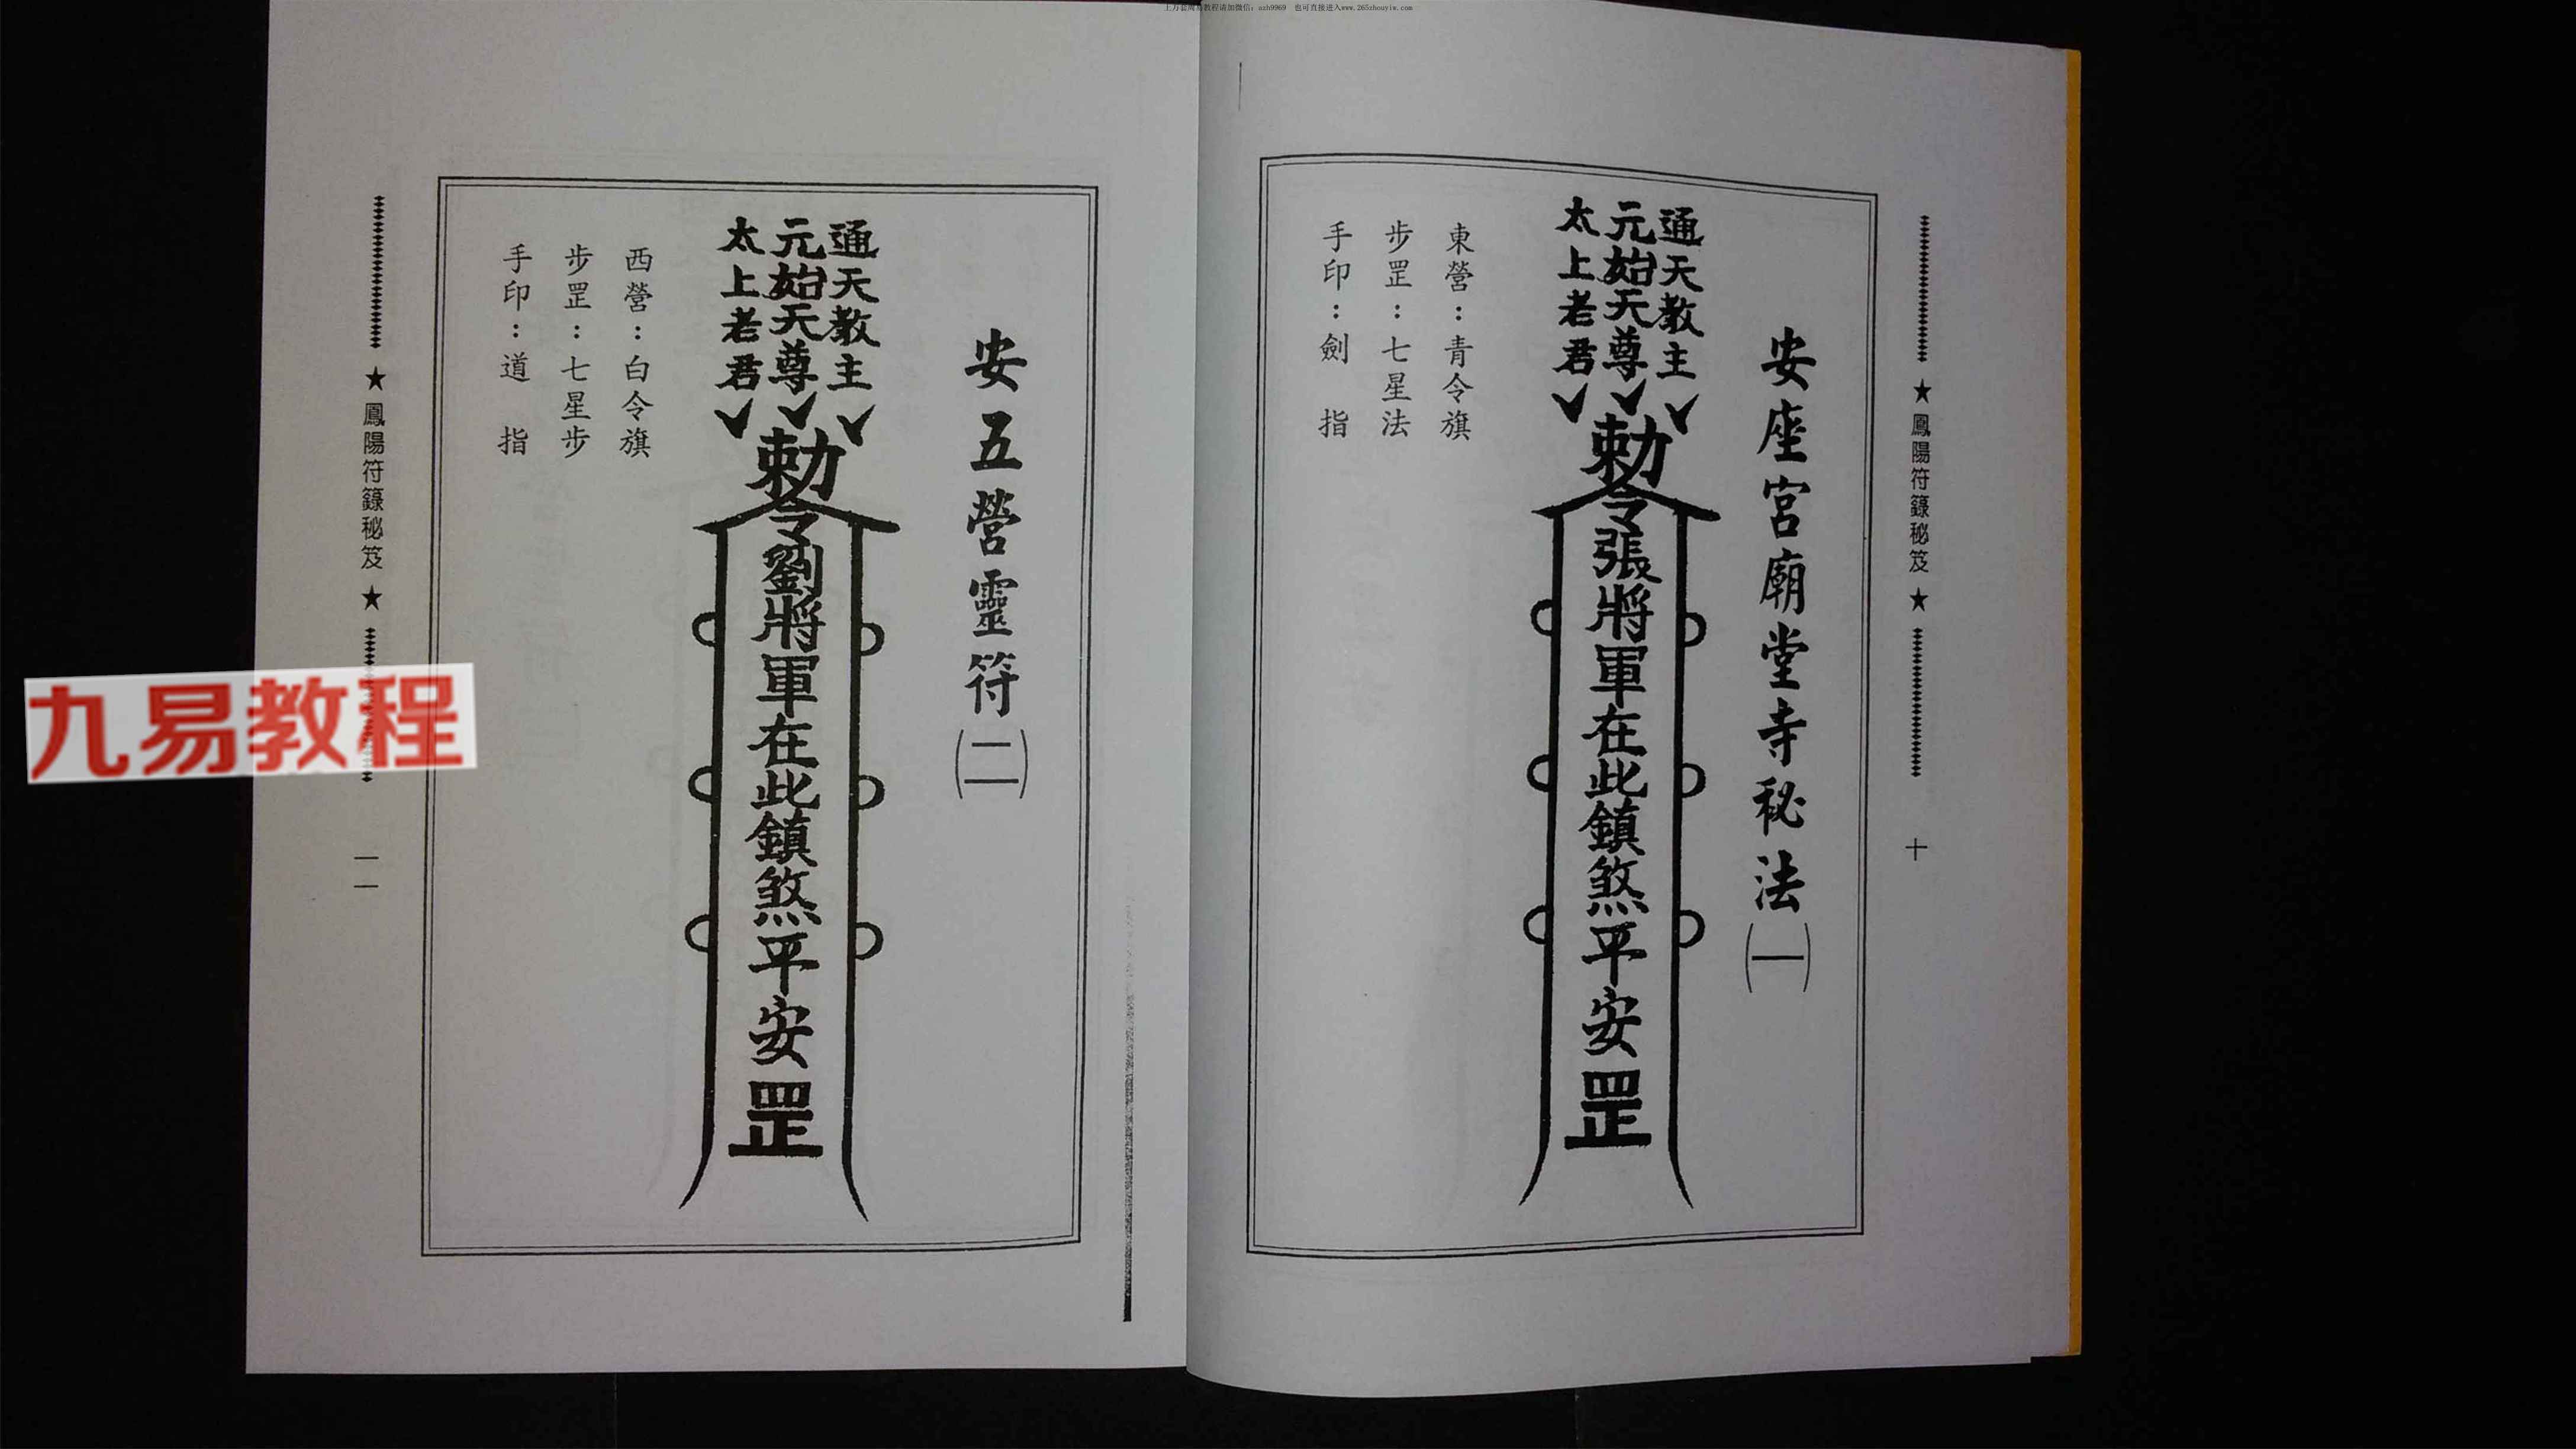 教程请加微信：nzh9969 也可直接进入www.265zhouyiw.com
★鳳陽符籙秘笈★
十
安座宮廟堂寺秘法(一)
通天教主
元始天尊
太上老君
勅令張將軍在此鎮煞平安罡
東營：青令旗
步罡：七星法
手印：劍指
安五營靈符(二)
通天教主
元始天尊
太上老君
勅令劉將軍在此鎮煞平安罡
西營：白令旗
步罡：七星步
手印：道指
★鳳陽符籙秘笈★
一一
九易教程